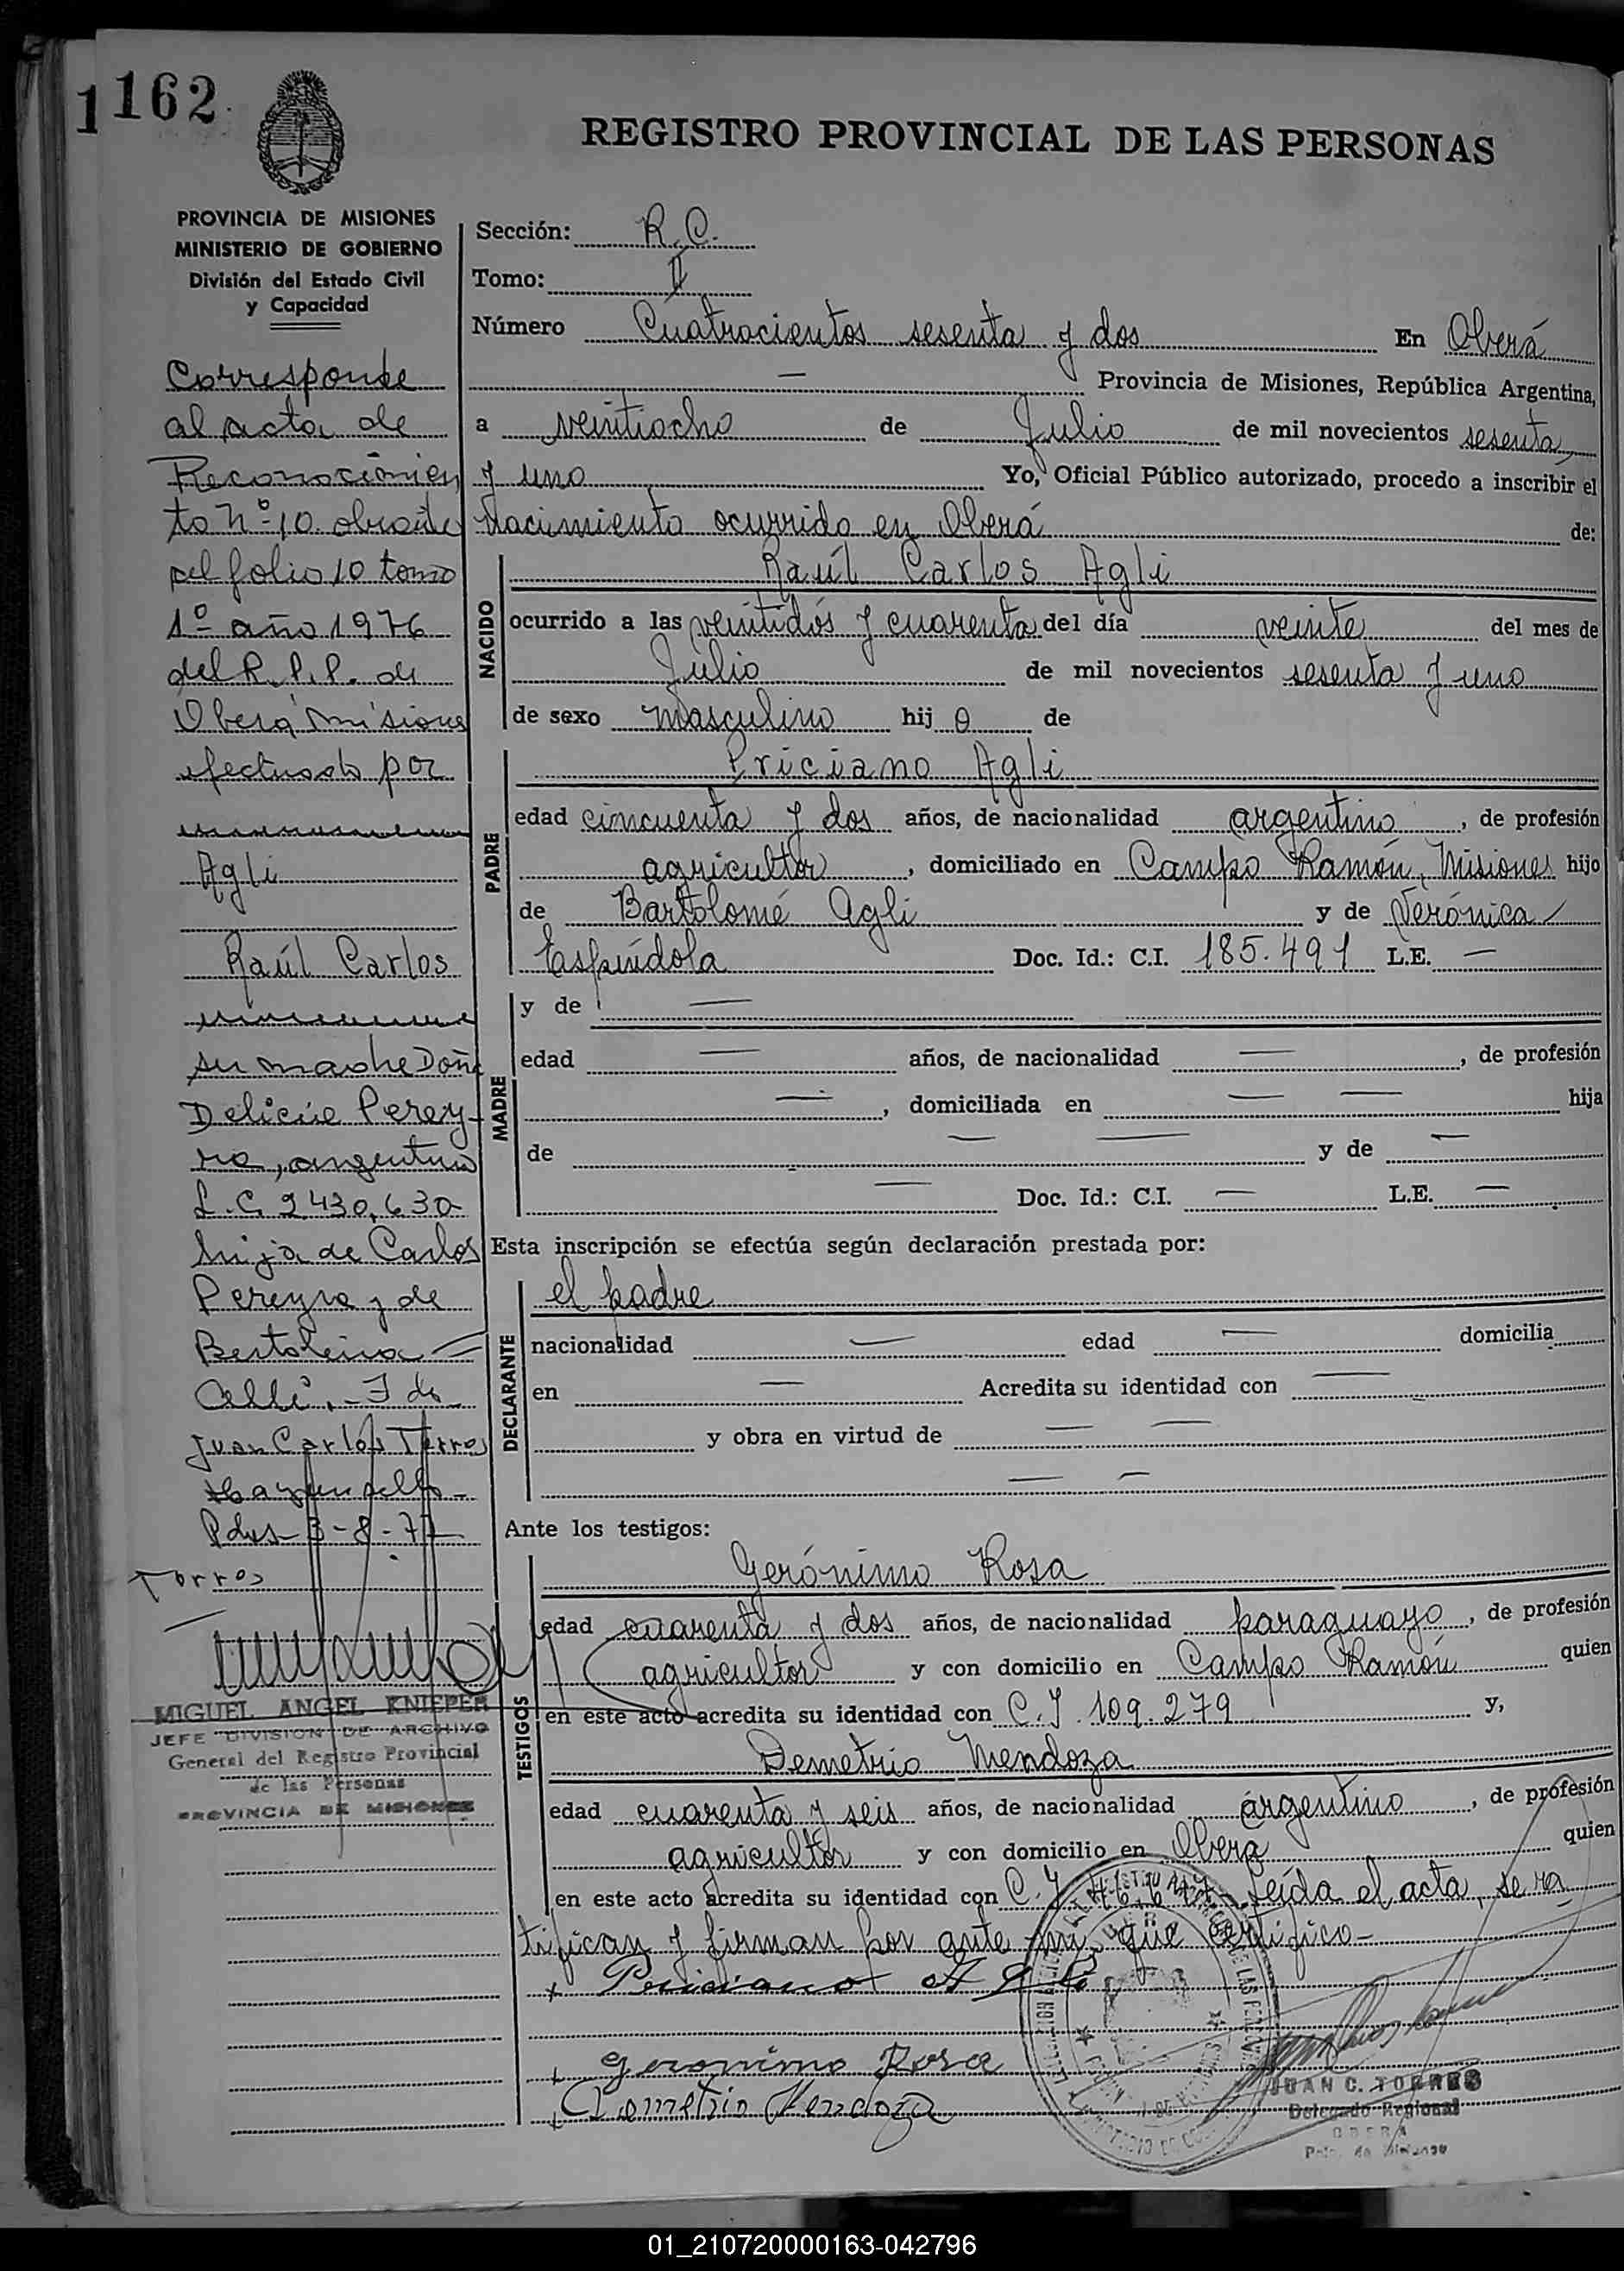 1162
REGISTRO PROVINCIAL DE LAS PERSONAS
PROVINCIA DE MISIONES
MINISTERIO DE GOBIERNO
División del Estado Civil
y Capacidad
Corresponde
al acta de
Reconocimien
to nº 10 obrante
al folio 10 tomo
1º año 1976
del R.P.P. de
Oberá Misiones
efectuado por
Agli
Raúl Carlos
su madre Doña
Delicie Perey-
ra, argentina
L.C. 2.430.630
hija de Carlos
Pereyra y de
Juan Carlos Torres
Pdas - 3-8-77
Torres
MIGUEL ANGEL KNIEPER
JEFE DIVISION DE ARCHIVO
General del Registro Provincial
de las Personas
PROVINCIA DE MISIONES
Sección: R.C.
Tomo: II
Número Cuatrocientos sesenta y dos En Oberá
— Provincia de Misiones, República Argentina,
a veintiocho de Julio de mil novecientos sesenta
y uno Yo, Oficial Público autorizado, procedo a inscribir el
nacimiento ocurrido en Oberá de:
NACIDO
Raúl Carlos Agli
ocurrido a las veintidós y cuarenta del día veinte del mes de
Julio de mil novecientos sesenta y uno
de sexo masculino hij o de
PADRE
Priciano Agli
edad cincuenta y dos años, de nacionalidad argentino, de profesión
agricultor, domiciliado en Campo Ramón, Misiones hijo
de Bartolomé Agli y de Verónica
Espíndola Doc. Id.: C.I. 185.491 L.E. —
MADRE
y de —
edad — años, de nacionalidad —, de profesión
—, domiciliada en — — hija
de — — y de —
— Doc. Id.: C.I. — L.E. —
Esta inscripción se efectúa según declaración prestada por:
DECLARANTE
el padre
nacionalidad — edad — domicilia
en — Acredita su identidad con —
y obra en virtud de — —
— —
Ante los testigos:
TESTIGOS
Gerónimo Rosa
edad cuarenta y dos años, de nacionalidad paraguayo, de profesión
agricultor y con domicilio en Campo Ramón quien
en este acto acredita su identidad con C.I. 109.279 y,
Demetrio Mendoza
edad cuarenta y seis años, de nacionalidad argentino, de profesión
agricultor y con domicilio en Oberá quien
en este acto acredita su identidad con C.I. Leída el acta, se ra
tifican y firman por ante mí, que certifico-
x Priciano Agli
Geronimo Rosa
Demetrio Mendoza
JUAN C. TORRES
Delegado Regional
OBERA
Pcia. de Misiones
01_210720000163-042796